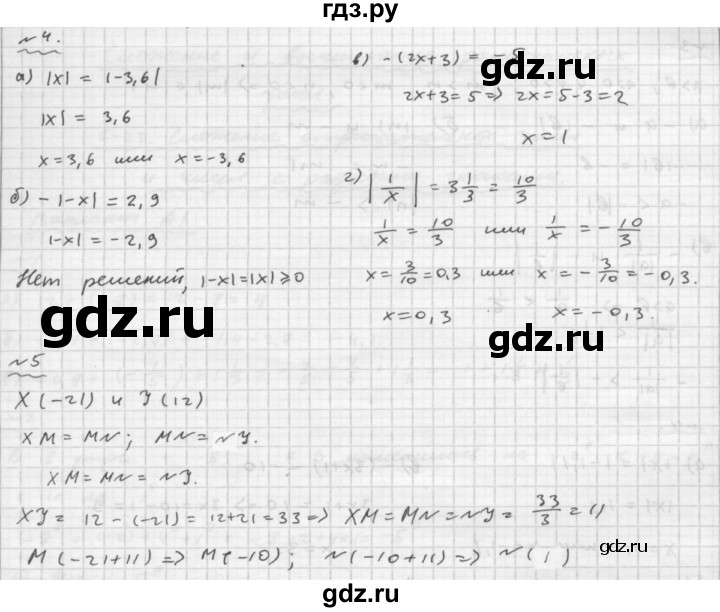 гдз.ру
№4.
а) |x| = |-3,6|
|x| = 3,6
x = 3,6 или x = -3,6
б) - |-x| = 2,9
|-x| = -2,9
Нет решений, |-x| = |x| ⩾ 0
в) -(2x+3) = -5
2x+3 = 5 => 2x = 5-3 = 2
x = 1
г) |1/x| = 3 1/3 = 10/3
1/x = 10/3 или 1/x = -10/3
x = 3/10 = 0,3 или x = -3/10 = -0,3.
x = 0,3 x = -0,3.
gdz.ru
gdz.ru
№5
X(-21) и Y(12)
XM = MN; MN = NY.
XM = MN = NY.
XY = 12 - (-21) = 12+21 = 33 => XM = MN = NY = 33/3 = 11
M(-21+11) => M(-10); N(-10+11) => N(1)
gdz.ru
gdz.ru